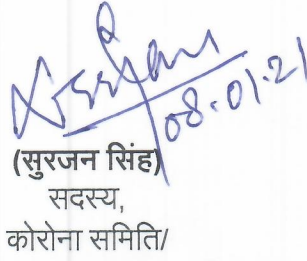 08.01.21
(सुरजन सिंह)
सदस्य,
कोरोना समिति/